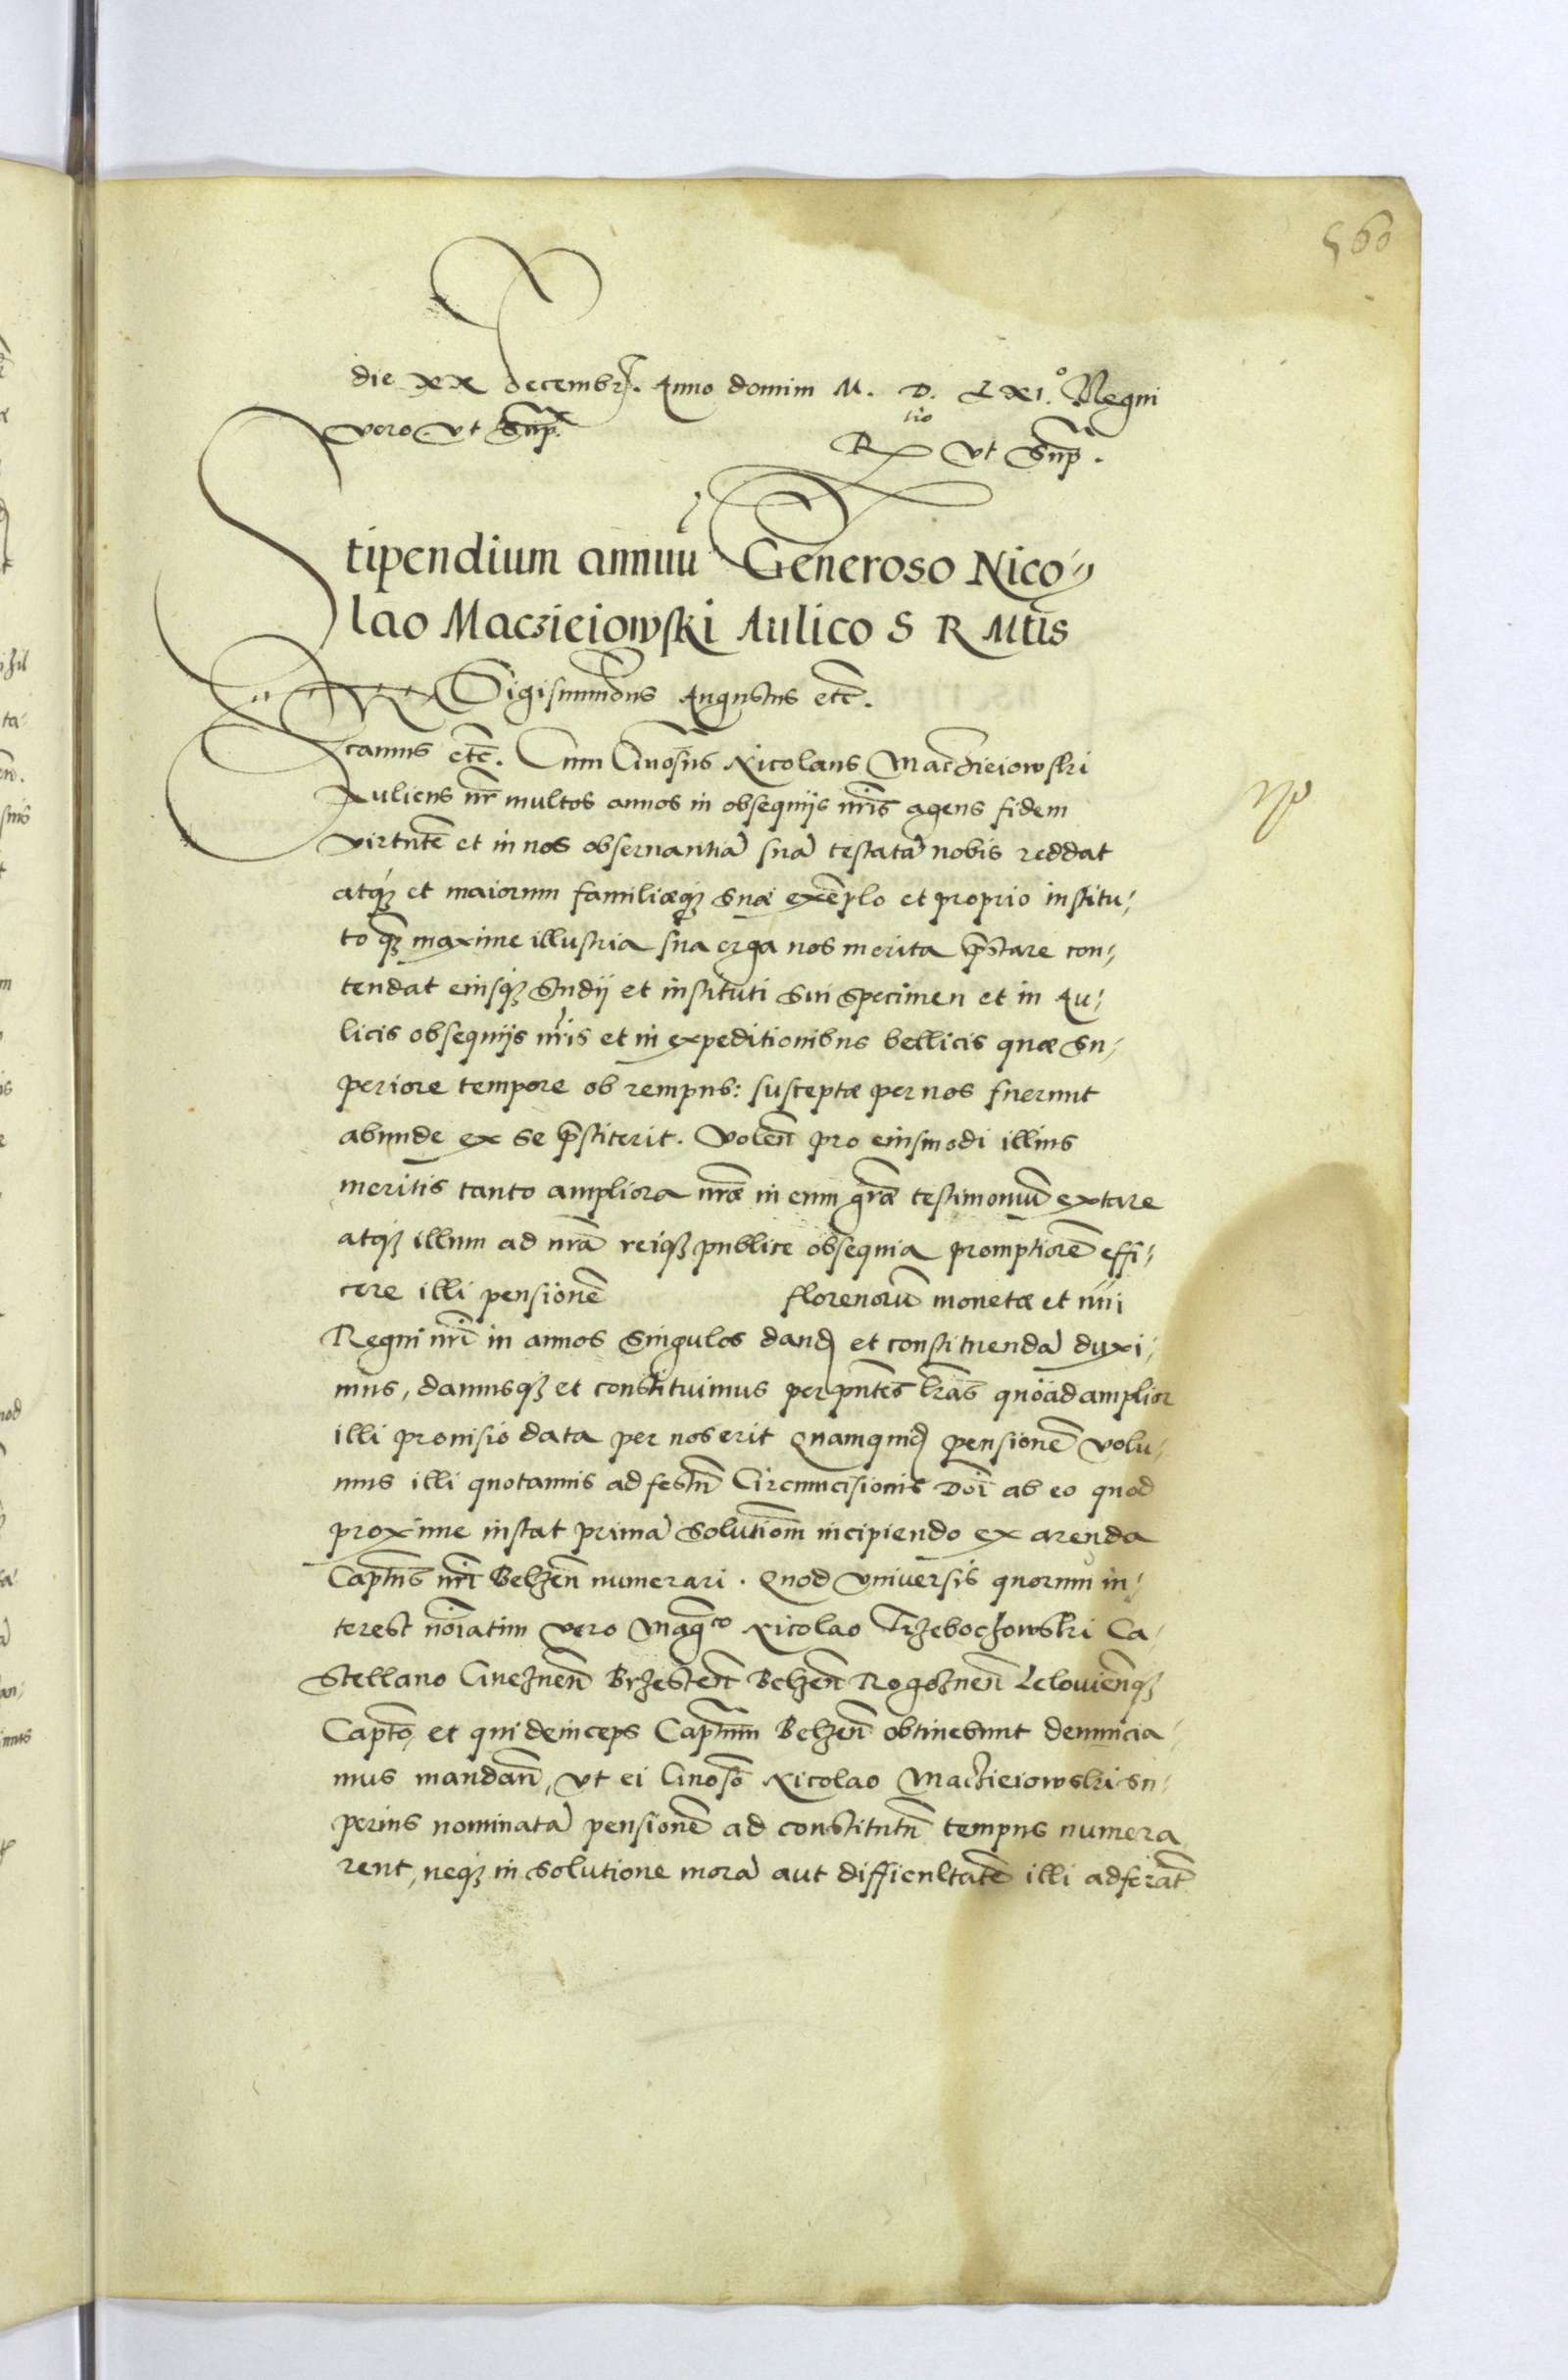 560
die xx decembr. Anno domini M. D. LXI.° Regni
vero vt Sup.
R tio vt Sup.
Stipendium annuū Generoso Nico„
lao Maczieiowski Aulico S R Mtis
Sigismundus Augustus etc̄.
camus etc̄. Cum Gnosus Nicolaus Maczieiowski
Aulicus nr̄ multos annos in obsequijs nr̄is agens fidem
virtutē et in nos obseruantiā suā testatā nobis reddat
atq̃ et maiorum familiæq̃ suæ exēplo et proprio institu„
to q̃ maxime illustria sua erga nos merita p̄stare con„
tendat eiusq̃ studij et instituti sui specimen et in Au„
licis obsequijs nr̄is et in expeditionibus bellicis quæ su„
periore tempore ob rempub: susceptæ per nos fuerunt
abunde ex se p̄stiterit. Volen̄ pro eiusmodi illius
meritis tanto ampliora nr̄æ in eum gr̄æ testimoniū extare
atq̃ illum ad nr̄ā reiq̃ publice obsequia promptiorē effi„
cere illi pensionē florenorū monetæ et nūi
Regni nr̄i in annos singulos dand et constituendā duxi„
mus, damusq̃ et constituimus per pn̄tes lr̄as quoad amplior
illi prouisio data per nos erit Quamquid pensionē volu„
mus illi quotannis ad festū Circumcisionis Doī ab eo quod
proxime instat primā solutiōm incipiendo ex arenda
Captus nr̄i Belzen̄ numerari. Quod vniversis quorum in„
terest noīatim vero Mag̃co Nicolao Trzeboczowski Ca„
stellano Gneznen̄ Brzesten̄ Belzen̄ Rogoznen̄ Lelouien̄q̃
Capto, et qui deinceps Captum Belzen̄ obtinebunt denuncia„
mus mandan̄, vt ei Gnoso Nicolao Maczieiowski su„
perius nominatā pensionē ad constitutū tempus numera
rent, neq̃ in solutione morā aut difficultatē illi adferāt